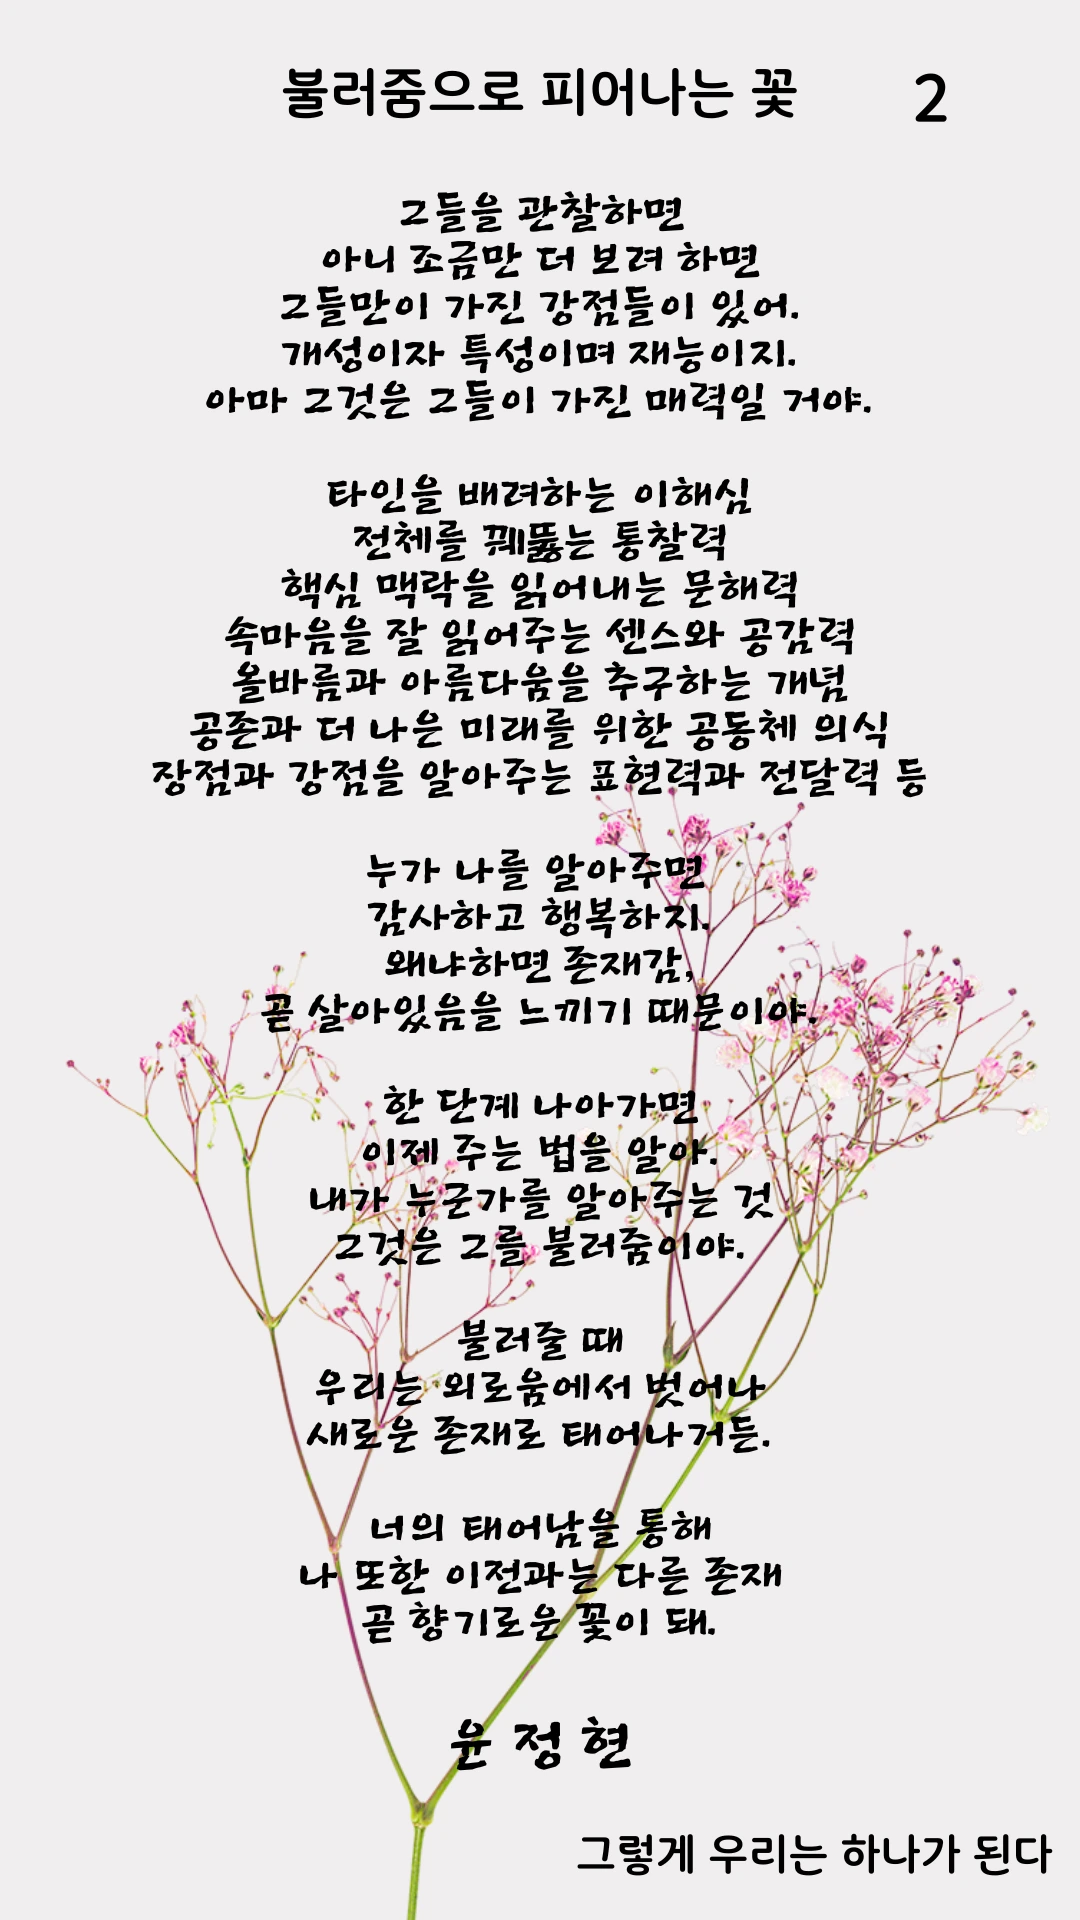 불러줌으로 피어나는 꽃 2
그들을 관찰하면
아니 조금만 더 보려 하면
그들만이 가진 강점들이 있어.
개성이자 특성이며 재능이지.
아마 그것은 그들이 가진 매력일 거야.
타인을 배려하는 이해심
전체를 꿰뚫는 통찰력
핵심 맥락을 읽어내는 문해력
속마음을 잘 읽어주는 센스와 공감력
올바름과 아름다움을 추구하는 개념
공존과 더 나은 미래를 위한 공동체 의식
장점과 강점을 알아주는 표현력과 전달력 등
누가 나를 알아주면
감사하고 행복하지.
왜냐하면 존재감,
곧 살아있음을 느끼기 때문이야.
한 단계 나아가면
이제 주는 법을 알아.
내가 누군가를 알아주는 것
그것은 그를 불러줌이야.
불러줄 때
우리는 외로움에서 벗어나
새로운 존재로 태어나거든.
너의 태어남을 통해
나 또한 이전과는 다른 존재
곧 향기로운 꽃이 돼.
윤정현
그렇게 우리는 하나가 된다